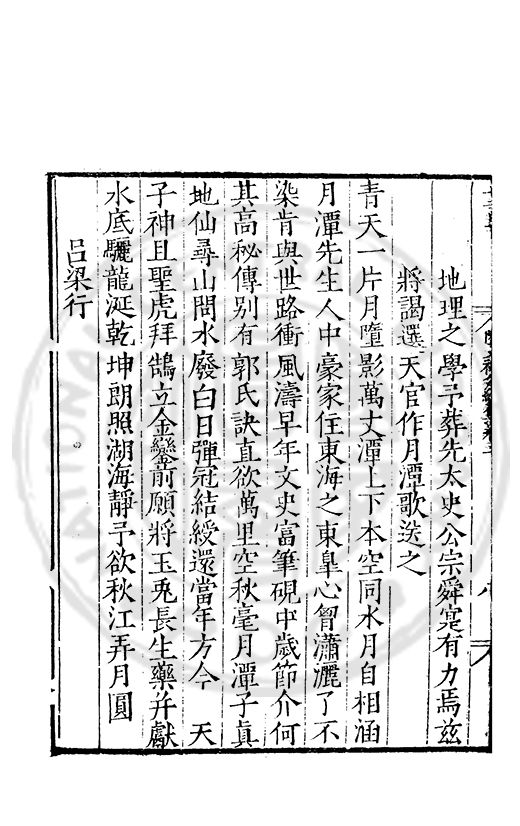 地理之學予葬先太史公宗舜寔有力焉兹
將謁選天官作月潭歌送之
青天一片月墮影萬丈潭上下本空同水月自相涵
月潭先生人中豪家住東海之東臯心胷瀟灑了不
染肯與世路衝風濤早年文史富筆硯中歲節介何
其高秘傳别有郭氏訣直欲萬里空秋毫月潭子真
地仙尋山問水廢白日彈冠結綬還當年方今 天
子神且聖虎拜鵠立金鑾前願將玉兎長生藥幷獻
水底驪龍涎乾坤朗照湖海靜予欲秋江弄月圓
吕梁行